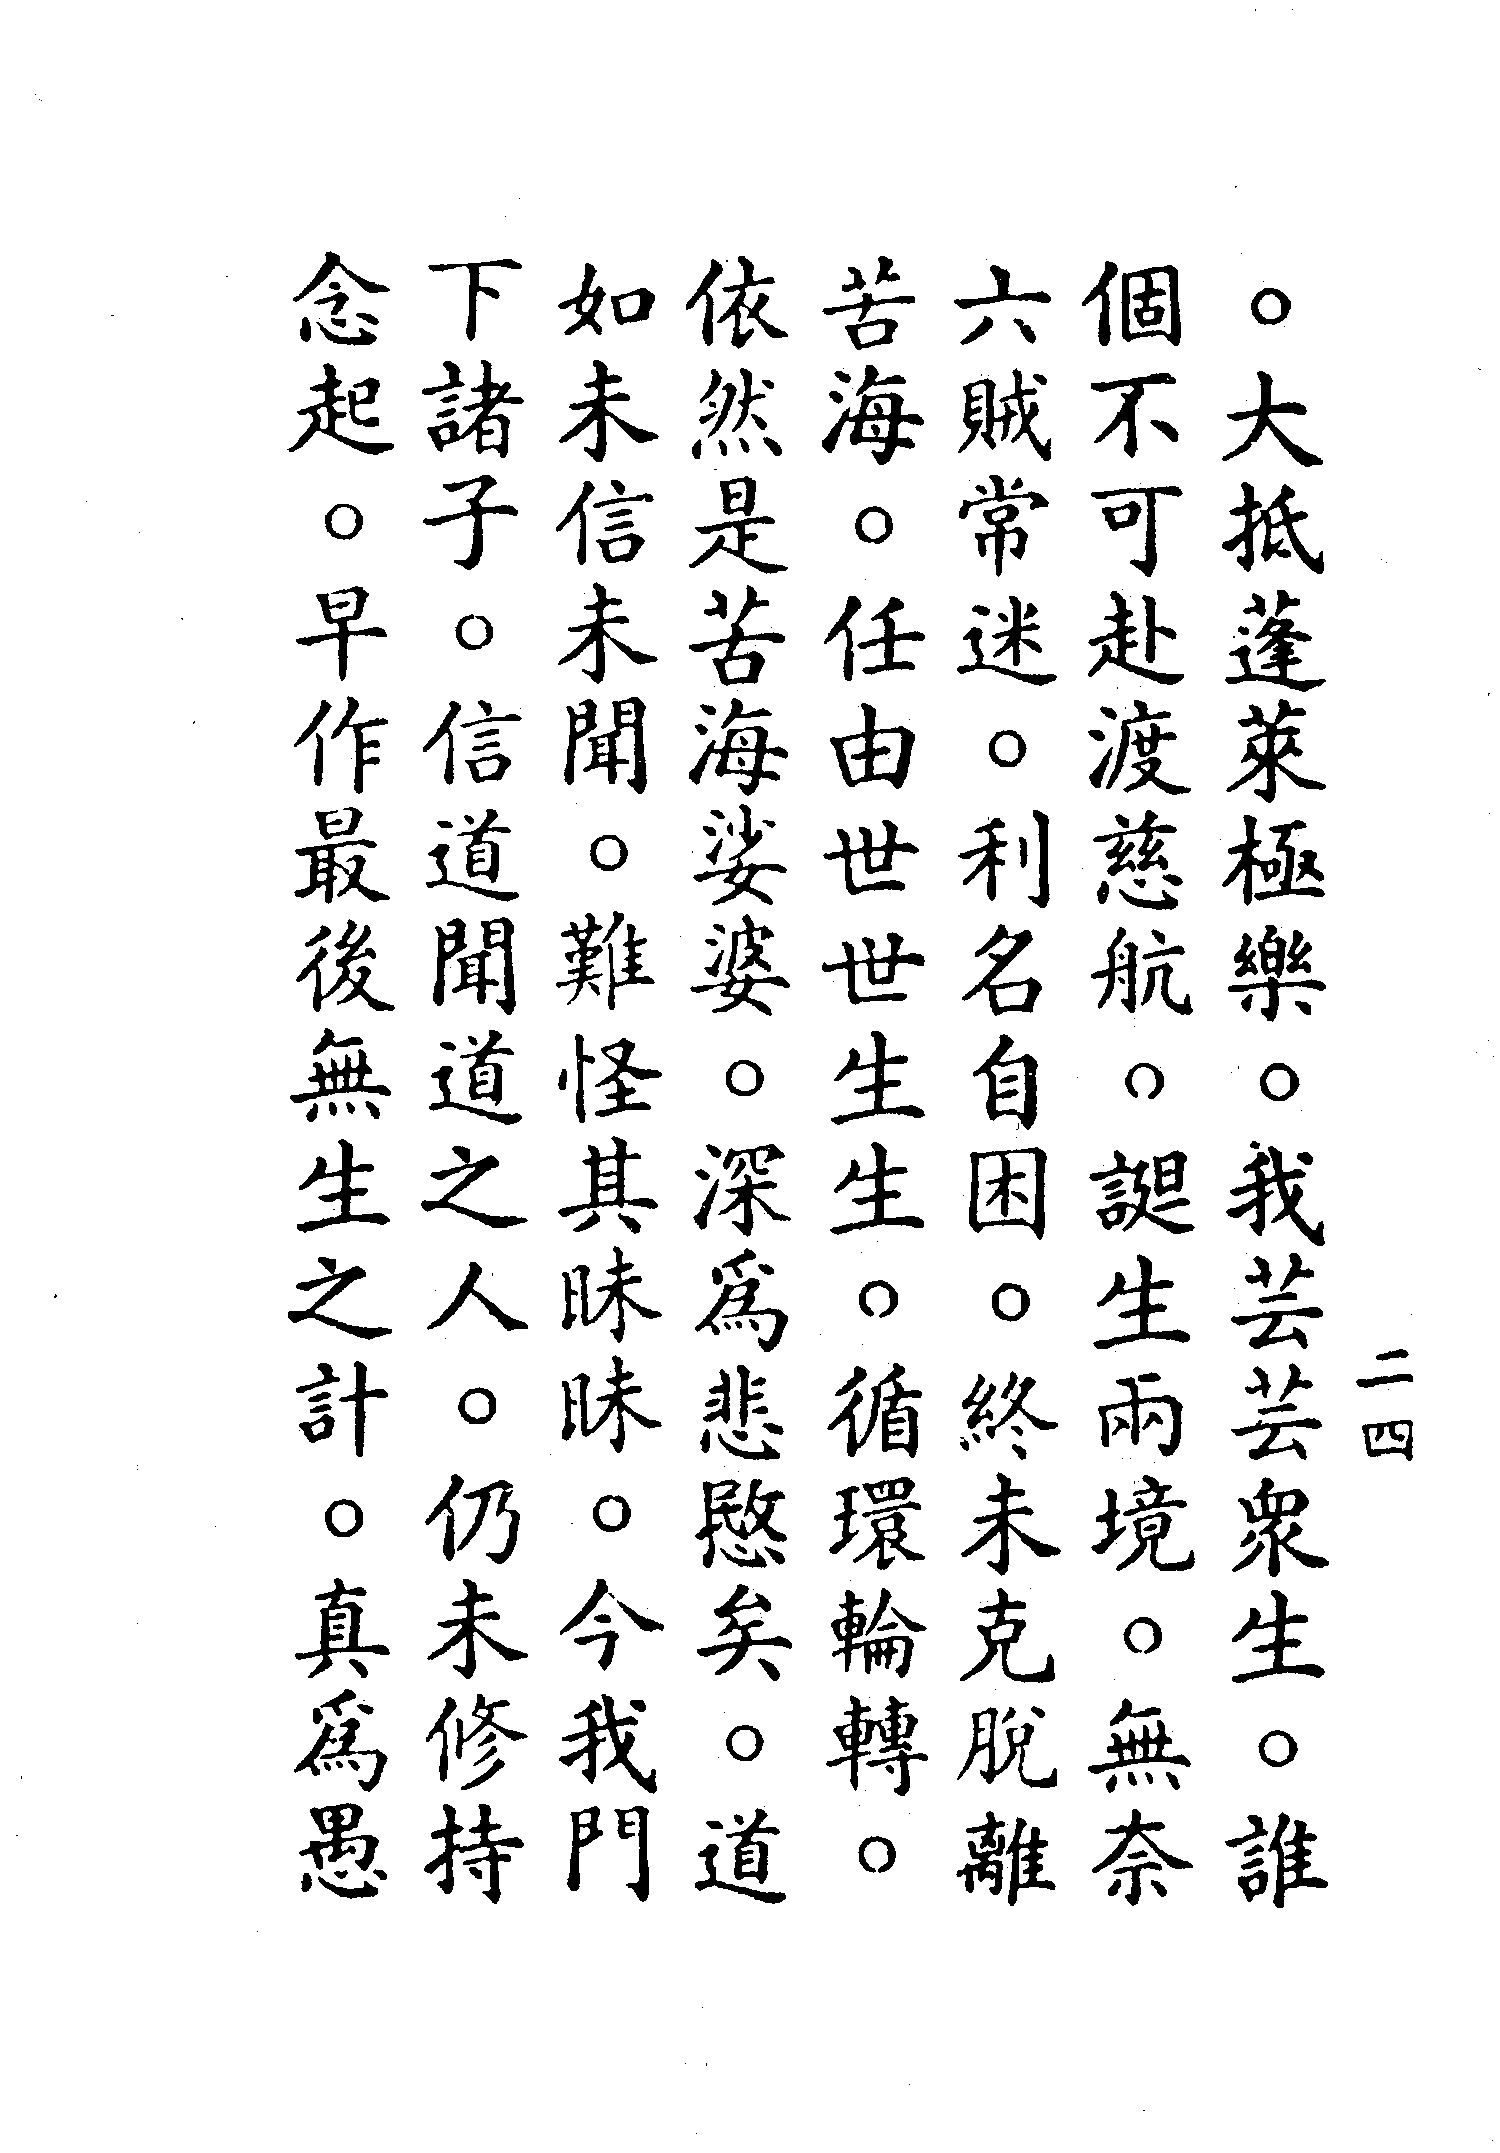 。大抵蓬萊極樂。我芸芸衆生。誰
個不可赴渡慈航。誕生兩境。無奈
六賊常迷。利名自困。終未克脫離
苦海。任由世世生生。循環輪轉。
依然是苦海娑婆。深爲悲愍矣。道
如未信未聞。難怪其昧昧。今我門
下諸子。信道聞道之人。仍未修持
念起。早作最後無生之計。真爲愚
二四